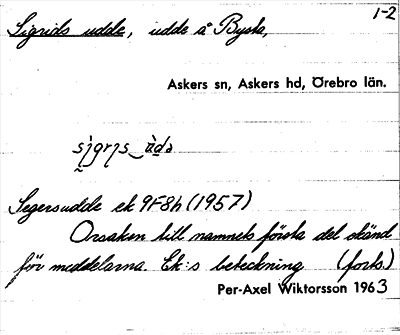 1-2
Sigrids udde, udde å Bysta,
Askers sn, Askers hd, Örebro län.
sìgrɩs ùdə
Segersudde ek 9F8h (1957)
Orsaken till namnets första del okänd
för meddelarna. Ek:s beteckning (forts.)
Per-Axel Wiktorsson 1963